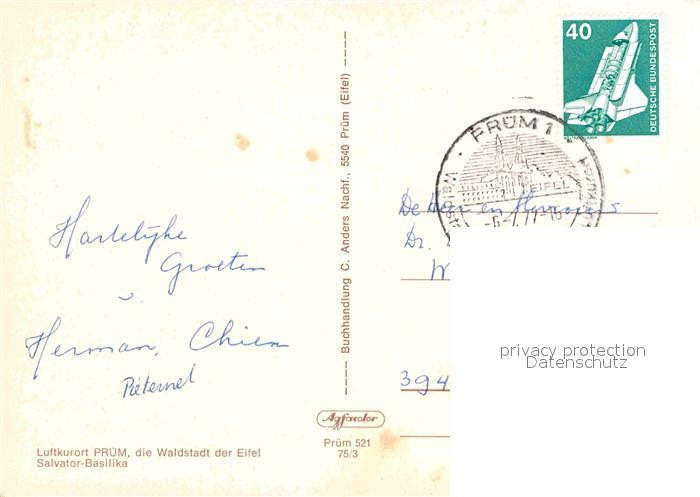 40
DEUTSCHE BUNDESPOST
PRÜM 1
EIFEL
Hartelijke
Groeten
Herman, Chien
Pieternel
Luftkurort PRÜM, die Waldstadt der Eifel
Salvator-Basilika
Buchhandlung C. Anders Nachf., 5540 Prüm (Eifel)
Agfacolor
Prüm 521
75/3
De Heer en
Dr.
394
privacy protection
Datenschutz